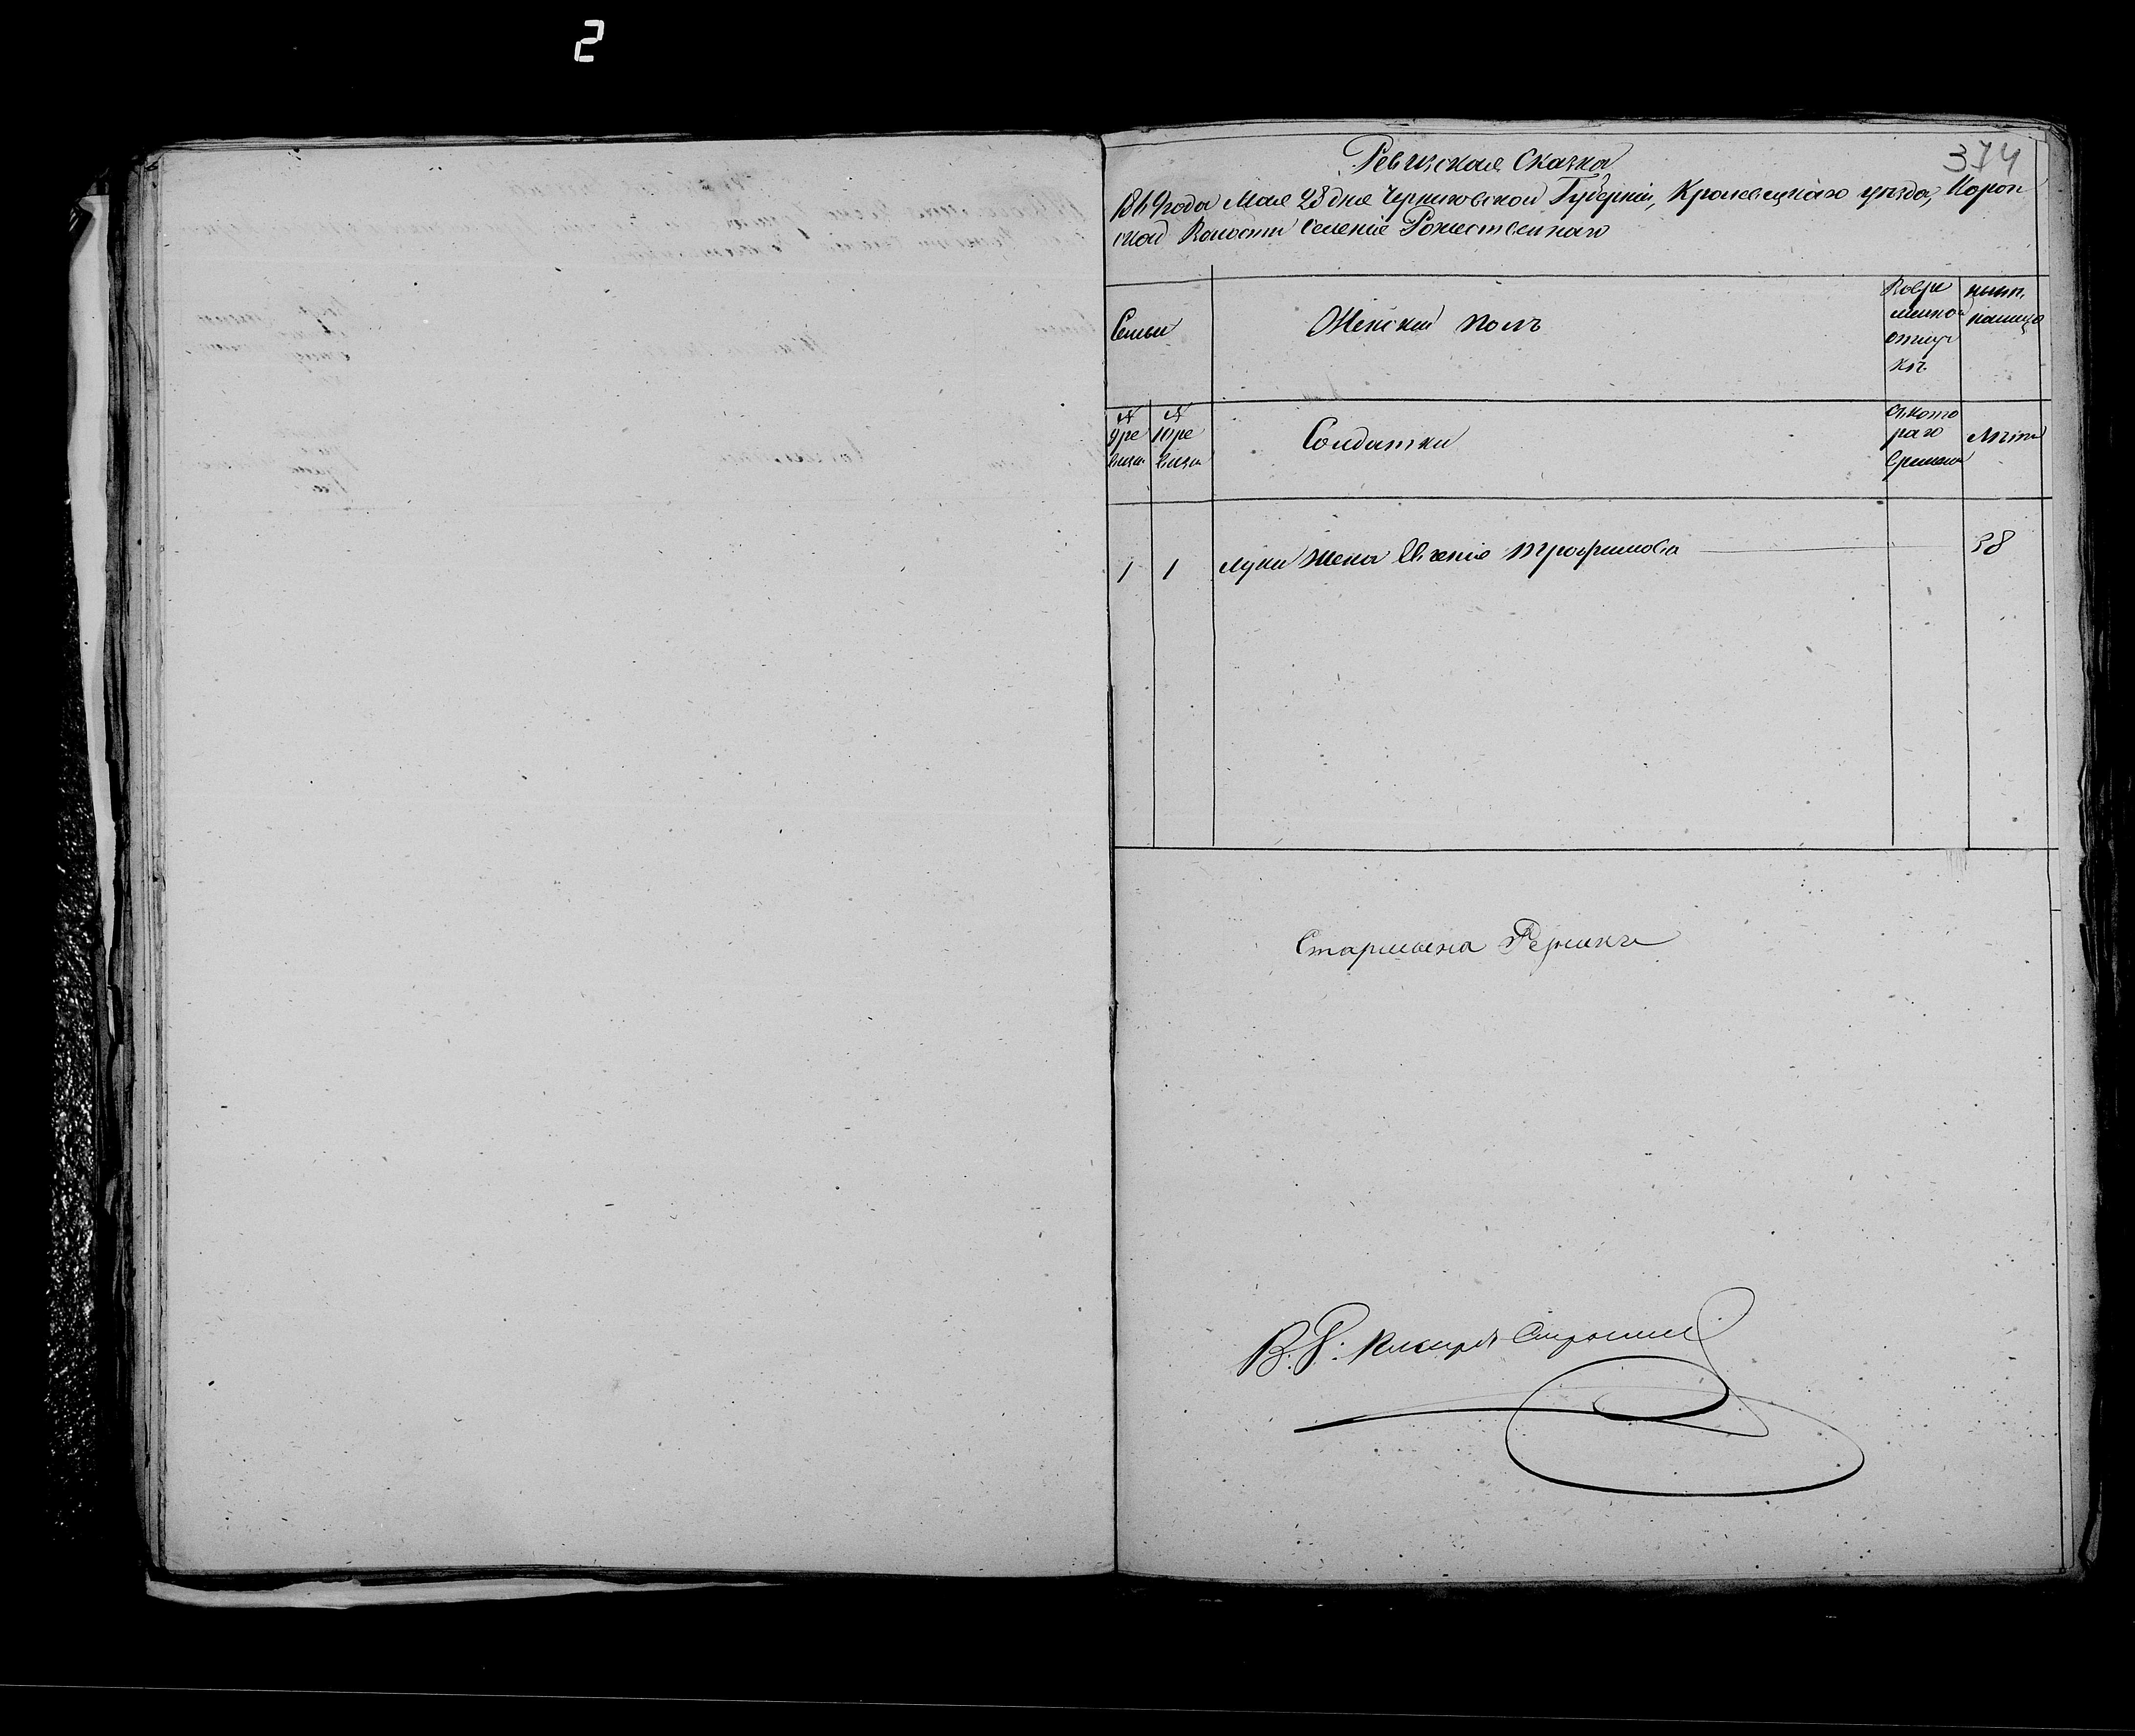 2
374
Ревизская Сказка
1869 года Мая 28 дня Черниговской Губерніи, Кролевецкаго уезда, Короп
ской Волости Селеніе Рожественнаго
Семьи
Женскій полъ
Вовре
менной
отлуч
кѣ
нынѣ
налицо
№
9 ре
визіи
№
10 ре
визіи
Солдатки
съ кото
раго
времени
Лѣта
1 1 Луки жена Евгенія Трофимова 38
Старшина Резникъ
В. П. Писарь